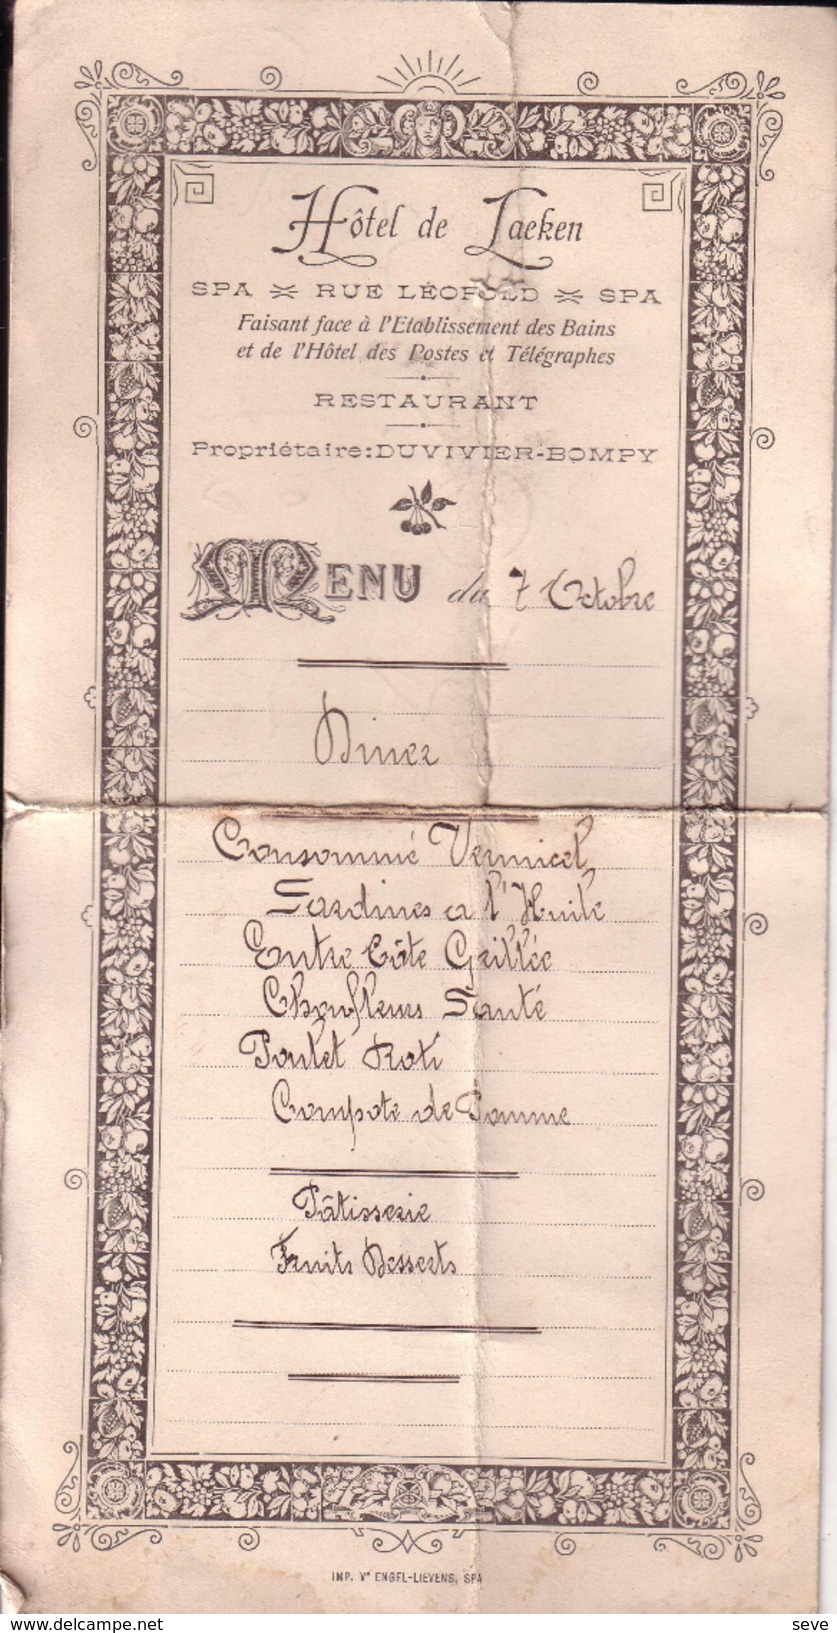 Hôtel de Laeken
SPA RUE LÉOPOLD SPA
Faisant face à l'Etablissement des Bains
et de l'Hôtel des Postes et Télégraphes
RESTAURANT
Propriétaire: DUVIVIER-BOMPY
MENU du 7 Octobre
Diner
Consommé Vermicel
Sardines a l'Huile
Entre Côte Grillée
Choufleurs Santé
Poulet Roti
Compote de Pomme
Pâtisserie
Fruits Desserts
IMP. Vᵉ ENGEL-LIEVENS, SPA
delcampe.net
seve